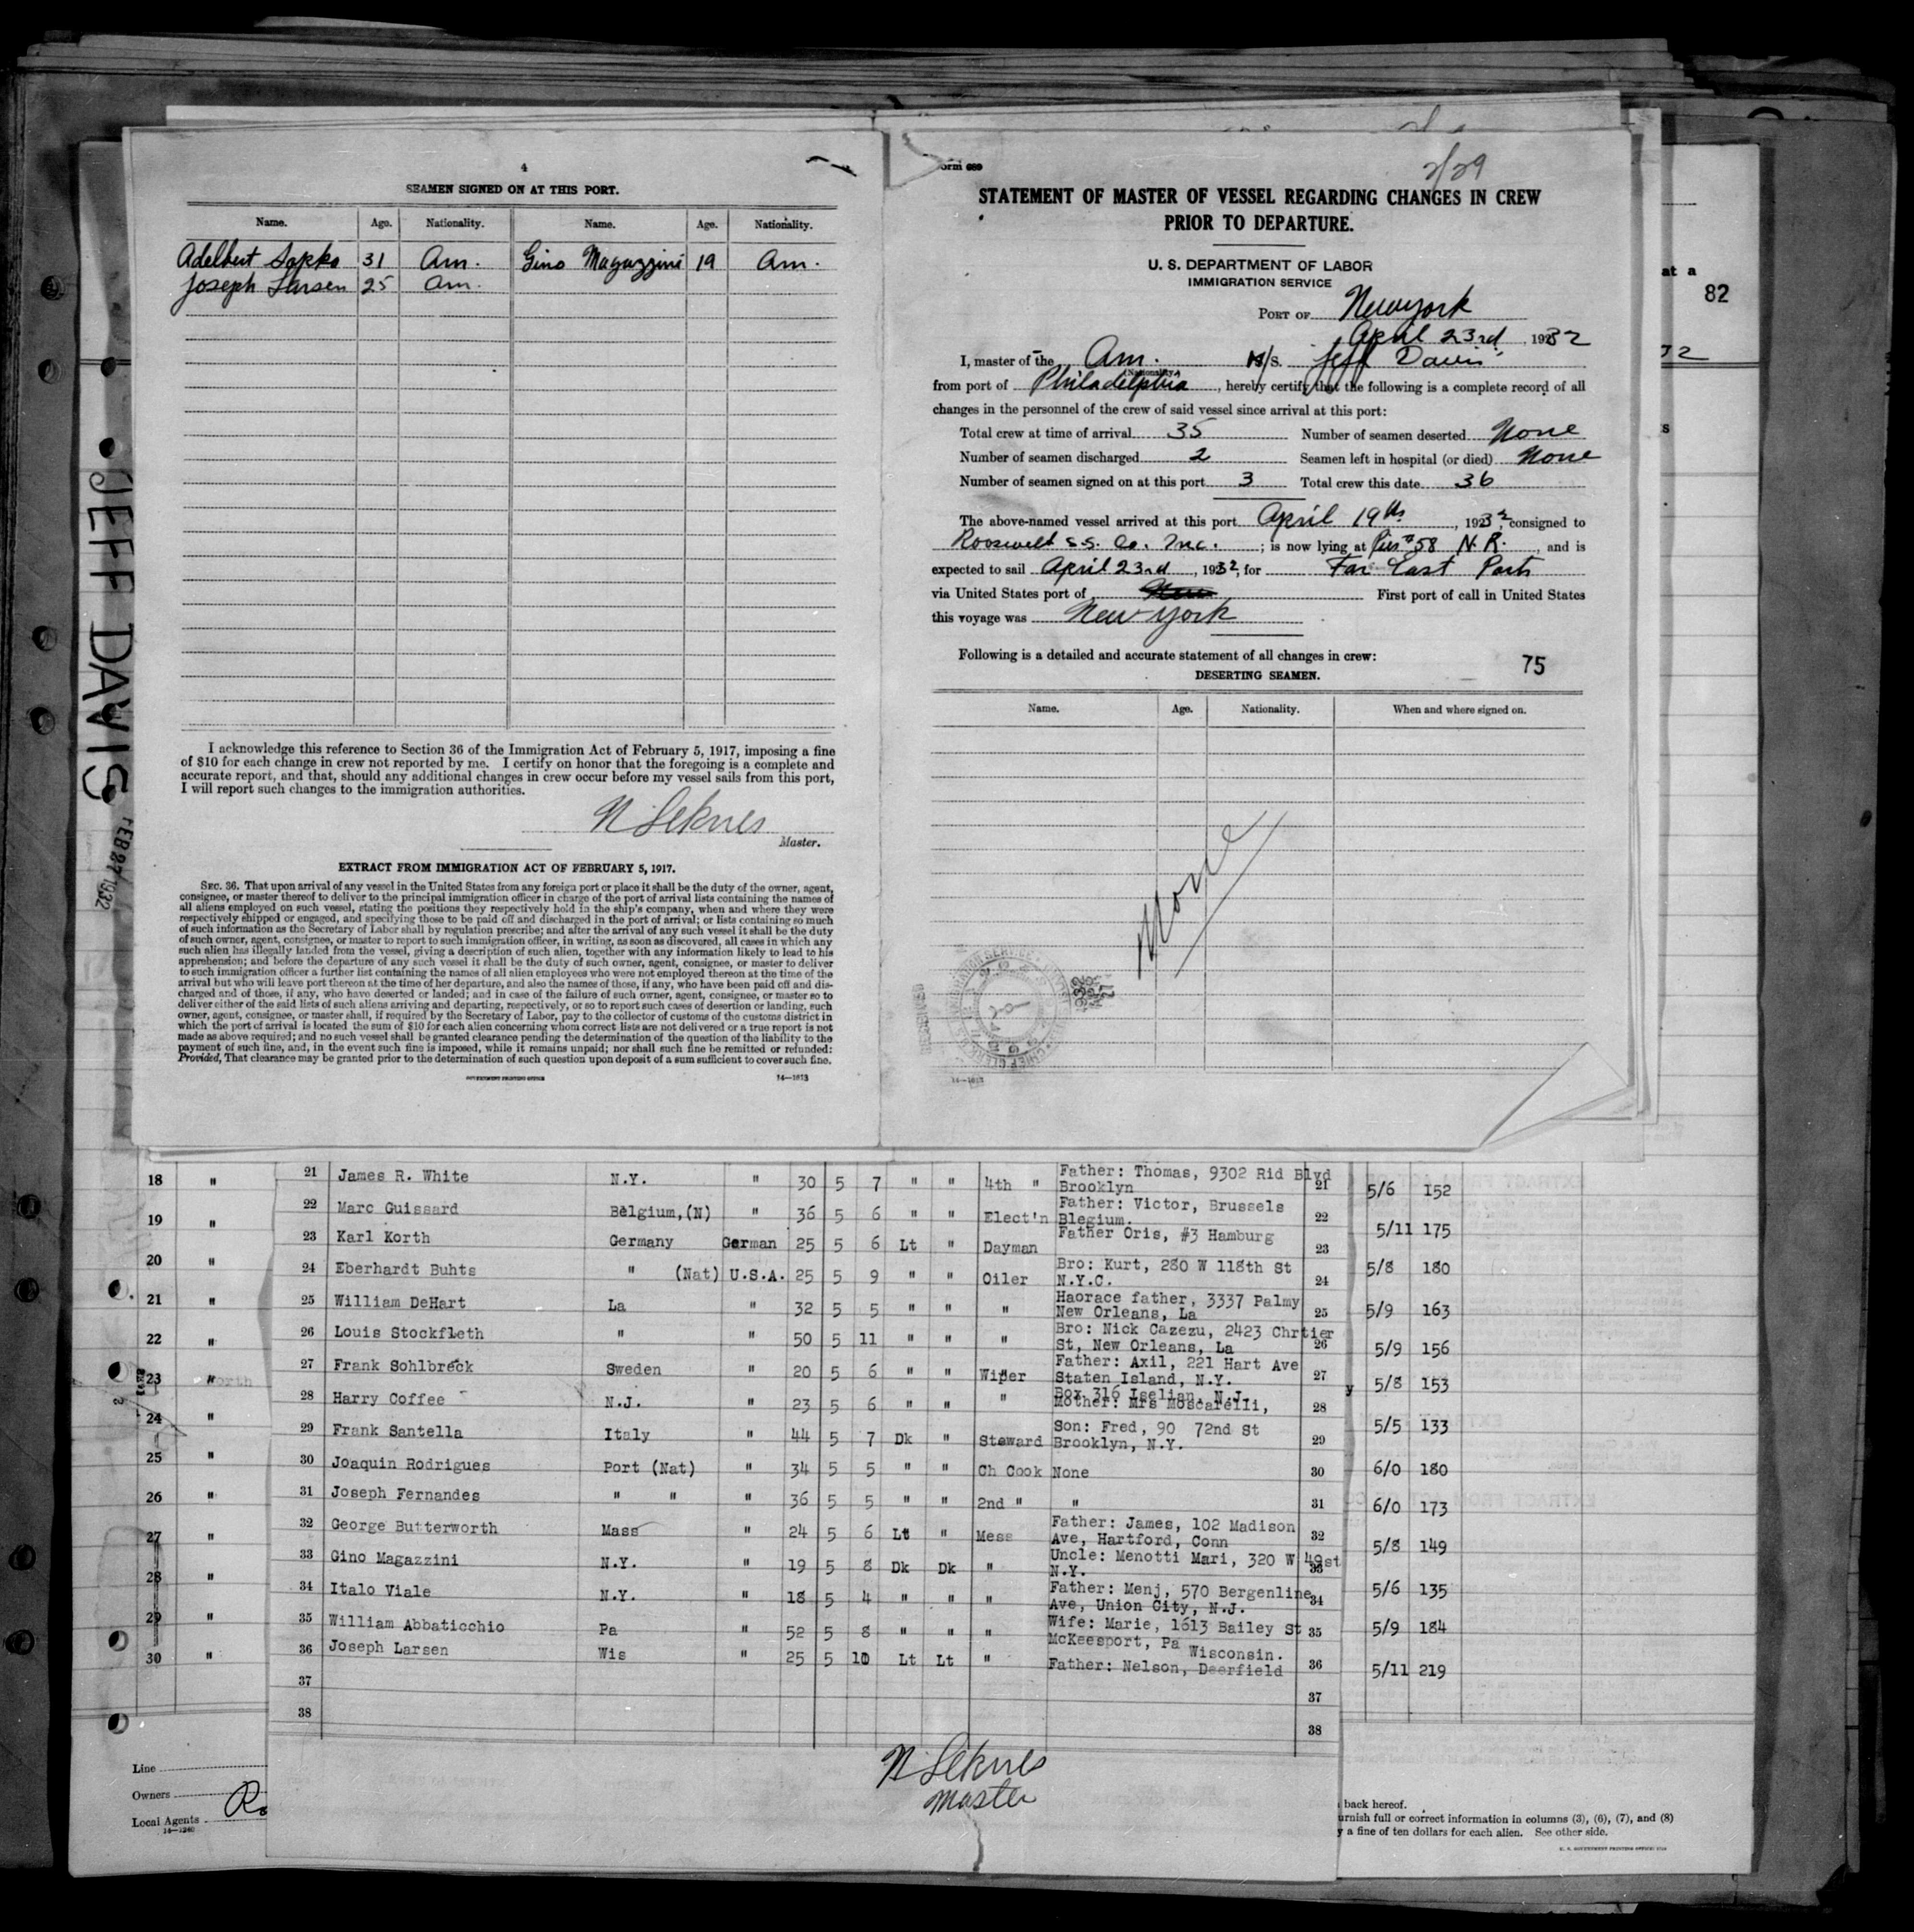 4
SEAMEN SIGNED ON AT THIS PORT.
Name. Age. Nationality. Name. Age. Nationality.
Adelbert Sopko 31 Am. Gino Magazzini 19 Am.
Joseph Larsen 25 Am.
I acknowledge this reference to Section 36 of the Immigration Act of February 5, 1917, imposing a fine
of $10 for each change in crew not reported by me. I certify on honor that the foregoing is a complete and
accurate report, and that, should any additional changes in crew occur before my vessel sails from this port,
I will report such changes to the immigration authorities.
N Seknes
Master.
EXTRACT FROM IMMIGRATION ACT OF FEBRUARY 5, 1917.
SEC. 36. That upon arrival of any vessel in the United States from any foreign port or place it shall be the duty of the owner, agent,
consignee, or master thereof to deliver to the principal immigration officer in charge of the port of arrival lists containing the names of
all aliens employed on such vessel, stating the positions they respectively hold in the ship's company, when and where they were
respectively shipped or engaged, and specifying those to be paid off and discharged in the port of arrival; or lists containing so much
of such information as the Secretary of Labor shall by regulation prescribe; and after the arrival of any such vessel it shall be the duty
of such owner, agent, consignee, or master to report to such immigration officer, in writing, as soon as discovered, all cases in which any
such alien has illegally landed from the vessel, giving a description of such alien, together with any information likely to lead to his
apprehension; and before the departure of any such vessel it shall be the duty of such owner, agent, consignee, or master to deliver
to such immigration officer a further list containing the names of all alien employees who were not employed thereon at the time of the
arrival but who will leave port thereon at the time of her departure, and also the names of those, if any, who have been paid off and dis-
charged and of those, if any, who have deserted or landed; and in case of the failure of such owner, agent, consignee, or master so to
deliver either of the said lists of such aliens arriving and departing, respectively, or so to report such cases of desertion or landing, such
owner, agent, consignee, or master shall, if required by the Secretary of Labor, pay to the collector of customs of the customs district in
which the port of arrival is located the sum of $10 for each alien concerning whom correct lists are not delivered or a true report is not
made as above required; and no such vessel shall be granted clearance pending the determination of the question of the liability to the
payment of such fine, and, in the event such fine is imposed, while it remains unpaid; nor shall such fine be remitted or refunded:
Provided, That clearance may be granted prior to the determination of such question upon deposit of a sum sufficient to cover such fine.
GOVERNMENT PRINTING OFFICE 14—1613
JEFF DAVIS
FEB 27 1932
orm 689
2/29
STATEMENT OF MASTER OF VESSEL REGARDING CHANGES IN CREW
PRIOR TO DEPARTURE.
U. S. DEPARTMENT OF LABOR
IMMIGRATION SERVICE
PORT OF New York
April 23rd, 1932
I, master of the Am. M/S. Jeff Davis
(Nationality.)
from port of Philadelphia, hereby certify that the following is a complete record of all
changes in the personnel of the crew of said vessel since arrival at this port:
Total crew at time of arrival 35 Number of seamen deserted None
Number of seamen discharged 2 Seamen left in hospital (or died) None
Number of seamen signed on at this port 3 Total crew this date 36
The above-named vessel arrived at this port April 19th, 1932, consigned to
Roosevelt S.S. Co. Inc.; is now lying at Pier # 58 N.R., and is
expected to sail April 23rd, 1932, for Far East Ports
via United States port of First port of call in United States
this voyage was New York
Following is a detailed and accurate statement of all changes in crew: 75
DESERTING SEAMEN.
Name. Age. Nationality. When and where signed on.
None
14—1613
at a
82
18 "
19 "
20 "
21 "
22 "
23 "
24 "
25 "
26 "
27 "
28 "
29 "
30 "
21 James R. White N.Y. " 30 5 7 " " 4th " Father: Thomas, 9302 Rid Blvd
Brooklyn 21 5/6 152
22 Marc Guissard Belgium,(N) " 36 5 6 " " Elect'n Father: Victor, Brussels
Blegium. 22 5/11 175
23 Karl Korth Germany German 25 5 6 Lt " Dayman Father Oris, #3 Hamburg 23
24 Eberhardt Buhts " (Nat) U.S.A. 25 5 9 " " Oiler Bro: Kurt, 280 W 118th St
N.Y.C. 24 5/8 180
25 William DeHart La " 32 5 5 " " " Haorace father, 3337 Palmy
New Orleans, La 25 5/9 163
26 Louis Stockfleth " " 50 5 11 " " " Bro: Nick Cazezu, 2423 Chrtier
St, New Orleans, La 26 5/9 156
27 Frank Sohlbreck Sweden " 20 5 6 " " Wiper Father: Axil, 221 Hart Ave
Staten Island, N.Y. 27 5/8 153
28 Harry Coffee N.J. " 23 5 6 " " " Box 316 Iselian, N.J.
Mother: Mrs Moscarelli, 28 5/5 133
29 Frank Santella Italy " 44 5 7 Dk " Steward Son: Fred, 90 72nd St
Brooklyn, N.Y. 29
30 Joaquin Rodrigues Port (Nat) " 34 5 5 " " Ch Cook None 30 6/0 180
31 Joseph Fernandes " " " 36 5 5 " " 2nd " " 31 6/0 173
32 George Butterworth Mass " 24 5 6 Lt " Mess Father: James, 102 Madison
Ave, Hartford, Conn 32 5/8 149
33 Gino Magazzini N.Y. " 19 5 8 Dk Dk " Uncle: Menotti Mari, 320 W 49st
N.Y. 33 5/6 135
34 Italo Viale N.Y. " 18 5 4 " " " Father: Menj, 570 Bergenline
Ave, Union City, N.J. 34
35 William Abbaticchio Pa " 52 5 8 " " " Wife: Marie, 1613 Bailey St
McKeesport, Pa 35 5/9 184
36 Joseph Larsen Wis " 25 5 10 Lt Lt " Wisconsin.
Father: Nelson, Deerfield 36 5/11 219
37 37
38 38
N Seknes
Master
Line
Owners
Local Agents
14—1240
back hereof.
urnish full or correct information in columns (3), (6), (7), and (8)
y a fine of ten dollars for each alien. See other side.